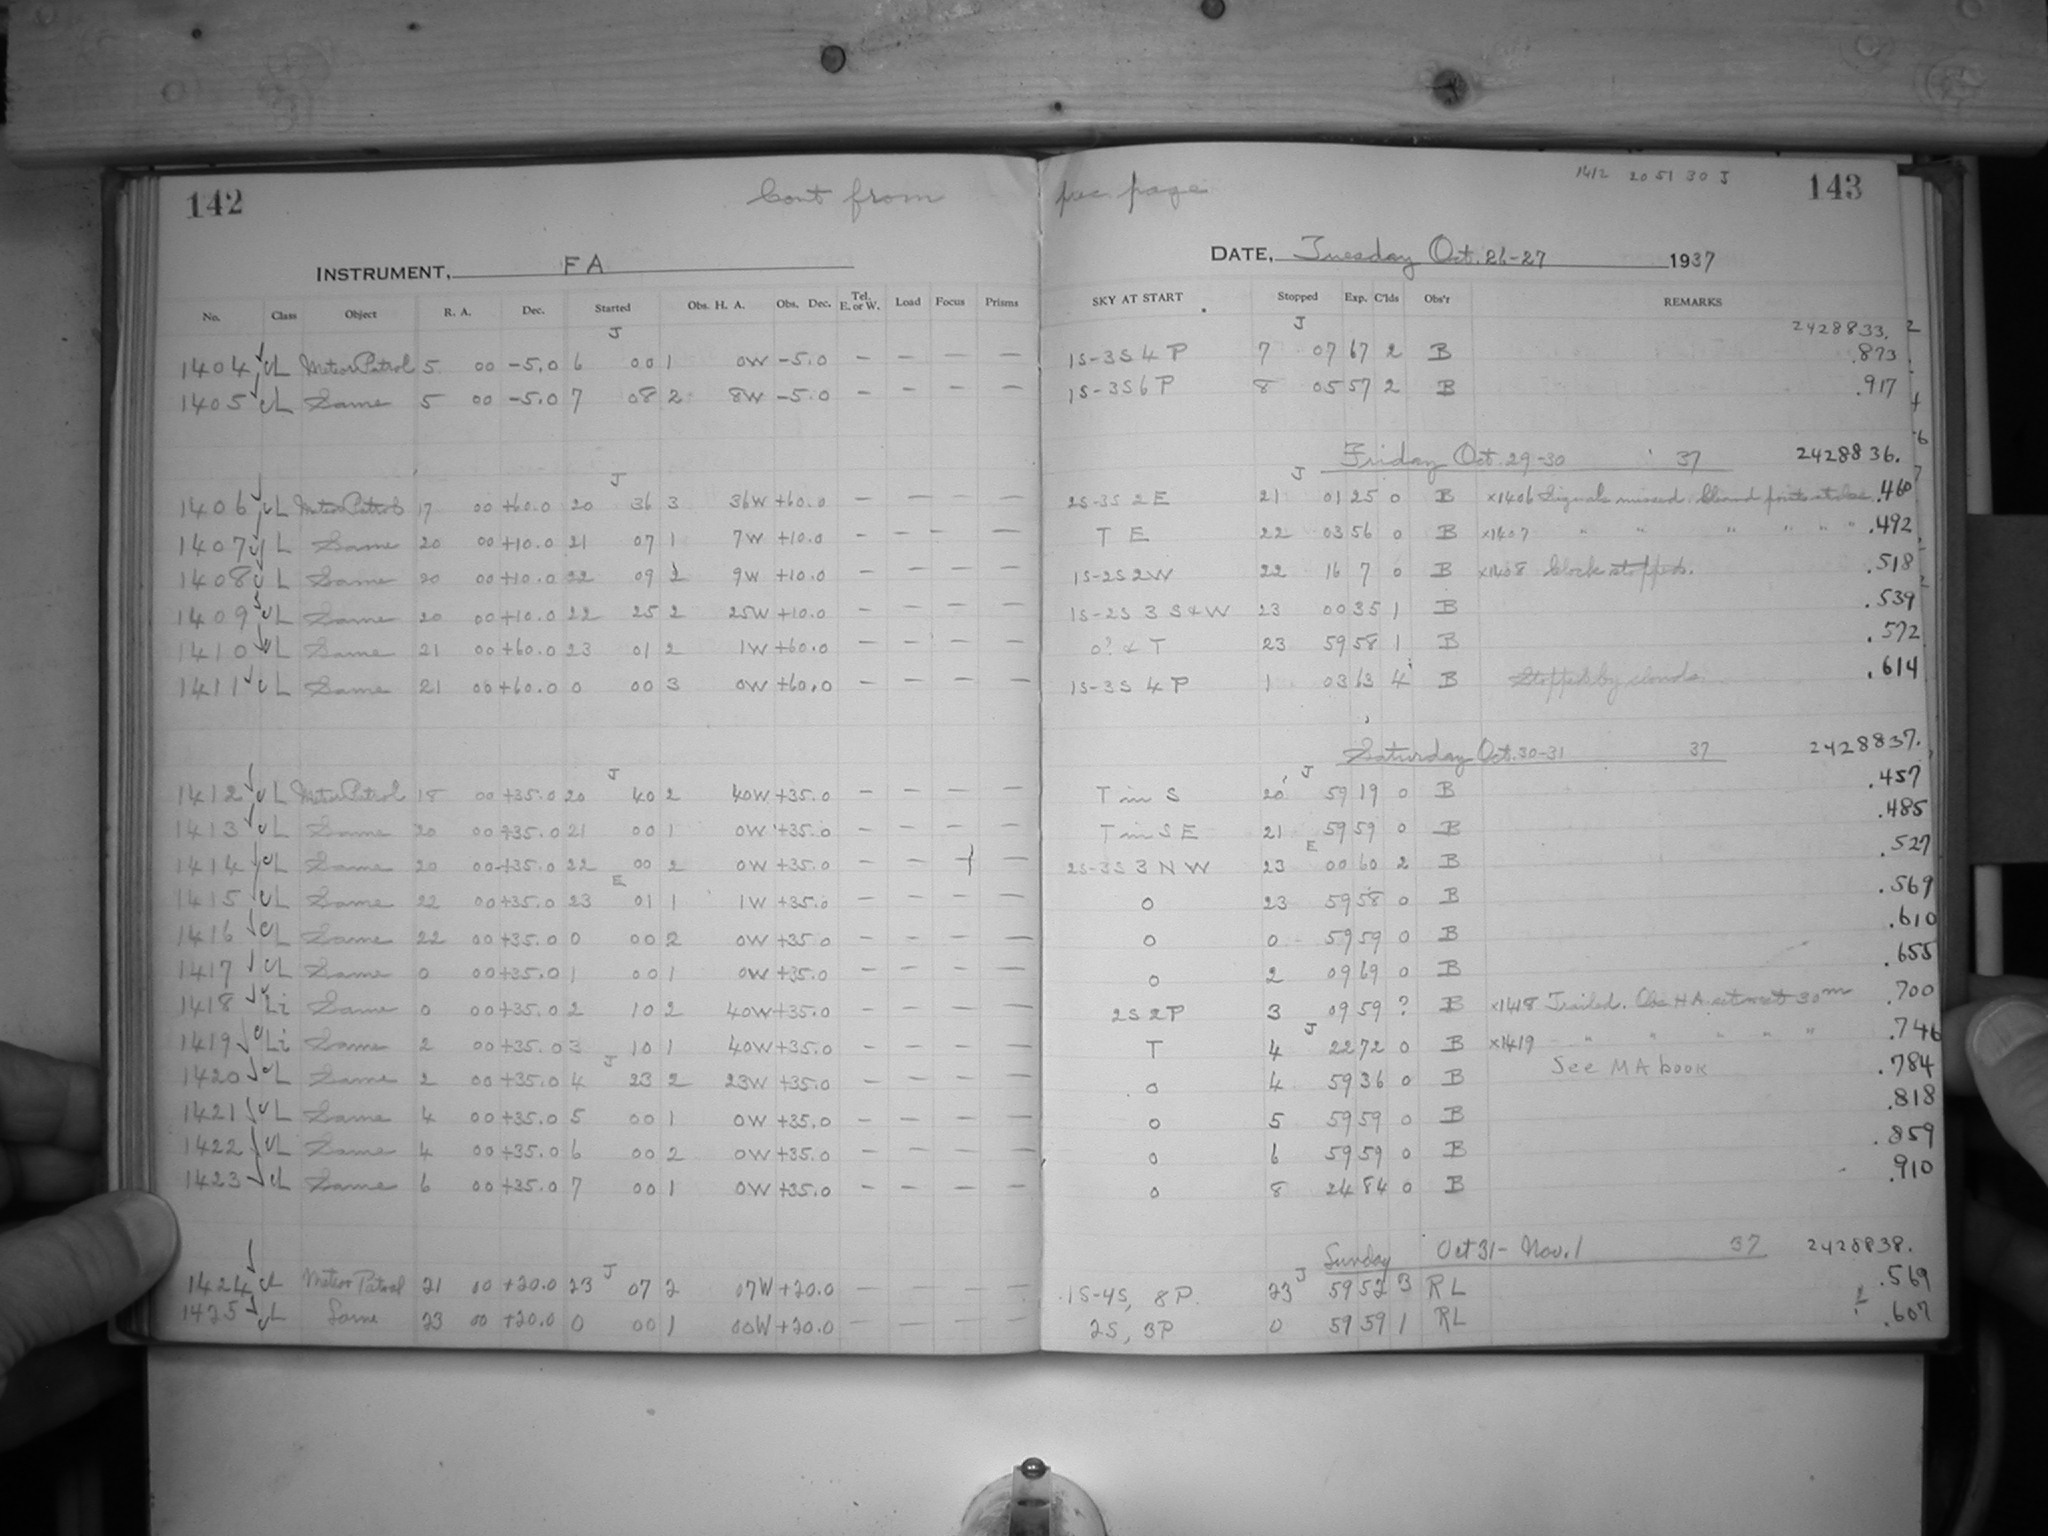 142 Cont from prec. page 1412 20 51 30 J 143
INSTRUMENT, FA DATE, Tuesday Oct. 26-27 1937
No. Class Object R. A. Dec. Started Obs. H. A. Obs. Dec. Tel. E. or W. Load Focus Prisms SKY AT START Stopped Exp. C'lds Obs'r REMARKS
J J 2428833.
1404 cL Meteor Patrol 5 00 -5.0 6 00 1 0W -5.0 — — — — 1S-3S 4 P 7 07 67 2 B .873
1405 cL Same 5 00 -5.0 7 08 2 8W -5.0 — — — — 1S-3S 6 P 8 05 57 2 B .917
Friday Oct. 29-30 37 2428836.
J J
1406 cL Meteor Patrol 17 00 +60.0 20 36 3 36W +60.0 — — — — 2S-3S 2 E 21 01 25 0 B x1406 Signals missed. .460
1407 cL Same 20 00 +10.0 21 07 1 7W +10.0 — — — — T E 22 03 56 0 B x1407 " " " " " " .492
1408 cL Same 20 00 +10.0 22 09 2 9W +10.0 — — — — 1S-2S 2W 22 16 7 0 B x1408 Clock stopped. .518
1409 cL Same 20 00 +10.0 22 25 2 25W +10.0 — — — — 1S-2S 3 S & W 23 00 35 1 B .539
1410 cL Same 21 00 +60.0 23 01 2 1W +60.0 — — — — 0? & T 23 59 58 1 B .572
1411 cL Same 21 00 +60.0 0 00 3 0W +60.0 — — — — 1S-3S 4 P 1 03 63 4 B Stopped by clouds. .614
Saturday Oct. 30-31 37 2428837.
J J
1412 cL Meteor Patrol 18 00 +35.0 20 40 2 40W +35.0 — — — — T in S 20 59 19 0 B .457
1413 cL Same 20 00 +35.0 21 00 1 0W +35.0 — — — — T in S E 21 59 59 0 B .485
E
1414 cL Same 20 00 +35.0 22 00 2 0W +35.0 — — — — 2S-3S 3 N W 23 00 60 2 B .527
E
1415 cL Same 22 00 +35.0 23 01 1 1W +35.0 — — — — 0 23 59 58 0 B .569
1416 cL Same 22 00 +35.0 0 00 2 0W +35.0 — — — — 0 0 59 59 0 B .610
1417 cL Same 0 00 +35.0 1 00 1 0W +35.0 — — — — 0 2 09 69 0 B .655
1418 Li Same 0 00 +35.0 2 10 2 40W +35.0 — — — — 2S 2P 3 09 59 ? B x1418 Trailed. Obs HA set west 30m .700
J
1419 cLi Same 2 00 +35.0 3 10 1 40W +35.0 — — — — T 4 22 72 0 B x1419 " " " " " .746
J See MA book
1420 cL Same 2 00 +35.0 4 23 2 23W +35.0 — — — — 0 4 59 36 0 B .784
1421 cL Same 4 00 +35.0 5 00 1 0W +35.0 — — — — 0 5 59 59 0 B .818
1422 cL Same 4 00 +35.0 6 00 2 0W +35.0 — — — — 0 6 59 59 0 B .859
1423 cL Same 6 00 +35.0 7 00 1 0W +35.0 — — — — 0 8 24 84 0 B .910
Sunday Oct 31 - Nov. 1 37 2428838.
J J
1424 cL Meteor Patrol 21 00 +20.0 23 07 2 07W +20.0 — — — — 1S-4S, 8P. 23 59 52 3 RL .569
1425 cL Same 23 00 +20.0 0 00 1 00W +20.0 — — — — 2S, 3P 0 59 59 1 RL .607